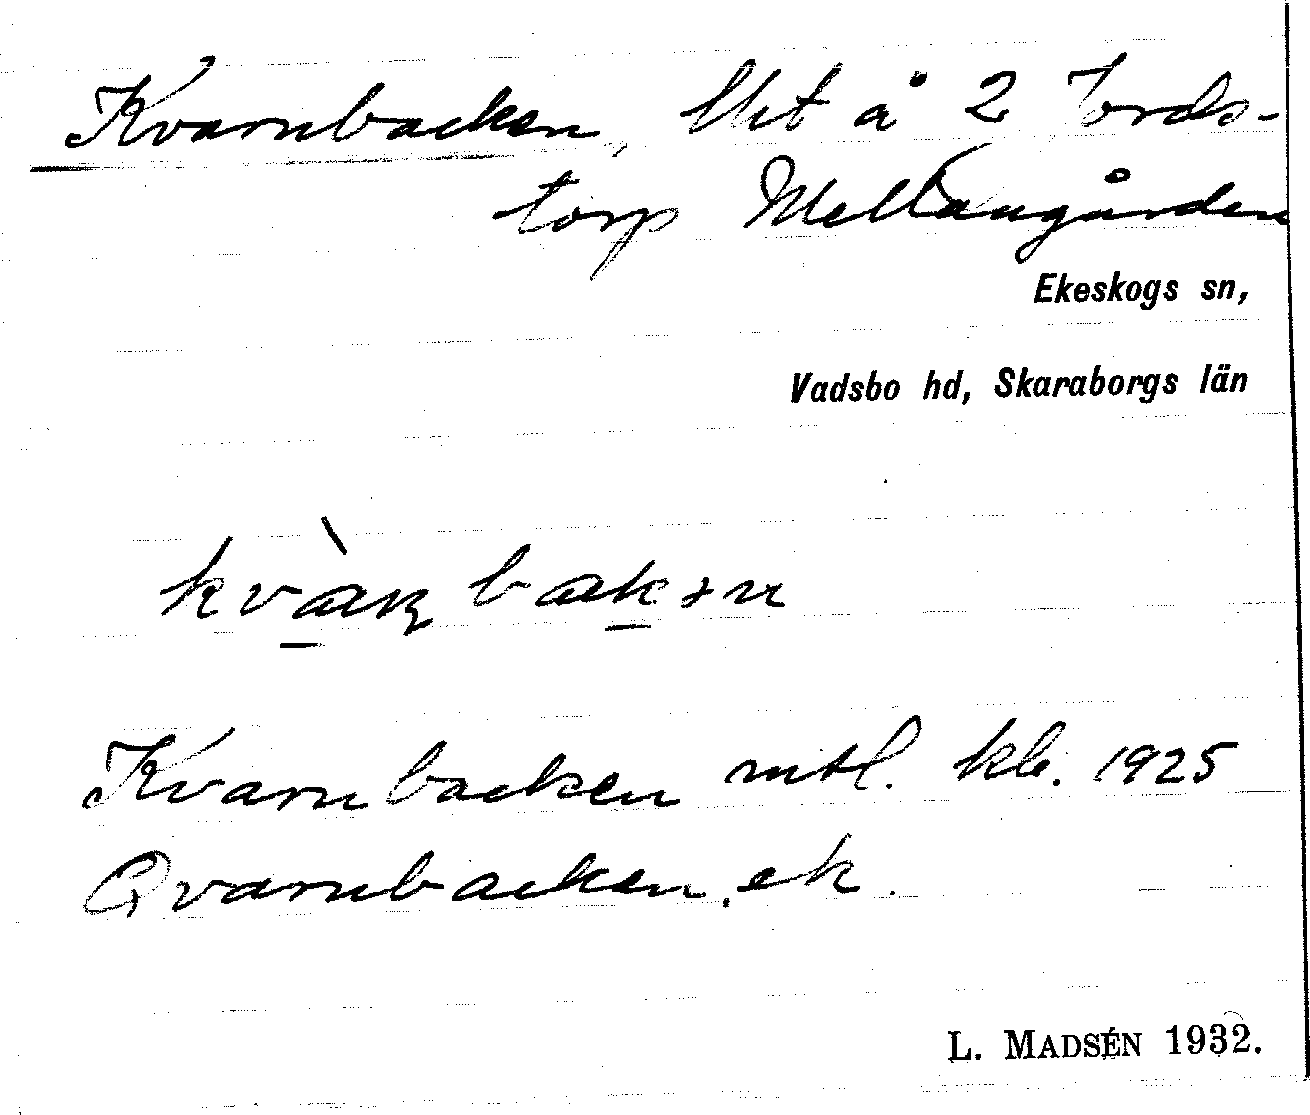 Kvarnbacken, lht å 2 Tords-
torp Mellangården
Ekeskogs sn,
Vadsbo hd, Skaraborgs län
Kvarnbacken mtl. kb. 1925
Qvarnbacken. ek.
L. MADSÉN 1932.